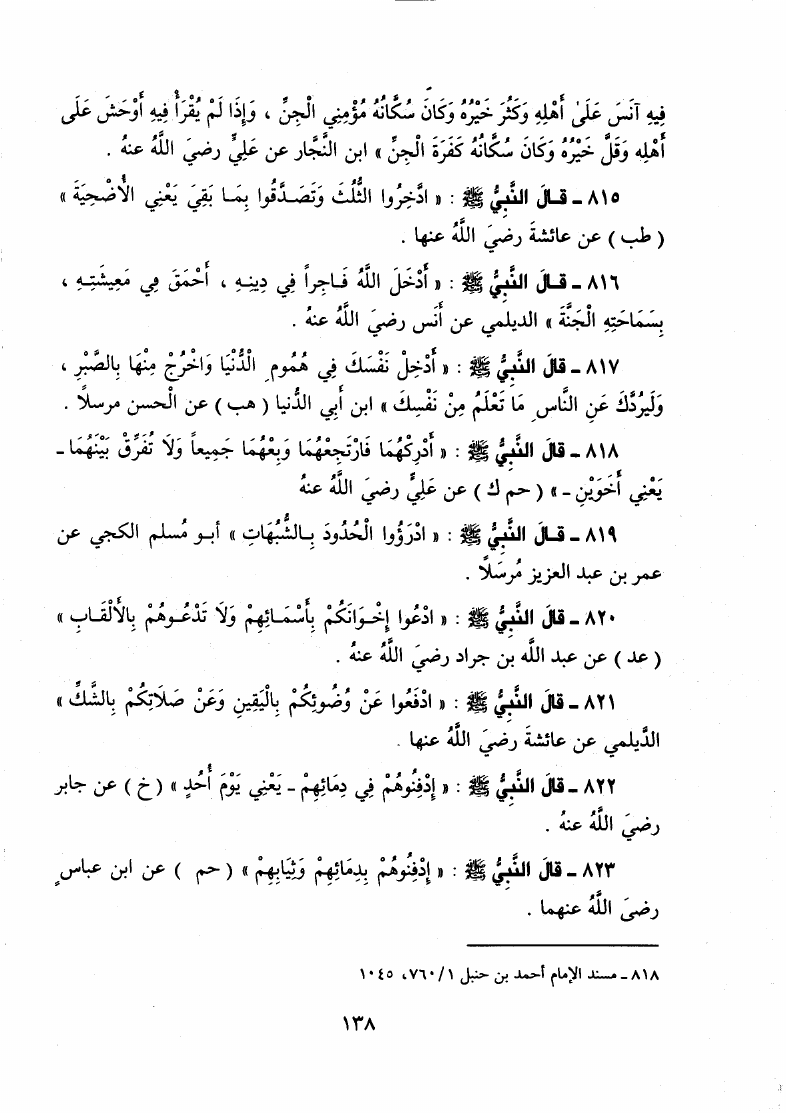 فِيهِ آنَسَ عَلَىٰ أَهْلِهِ وَكَثُرَ خَيْرُهُ وَكَانَ سُكَّانُهُ مُؤْمِنِي الْجِنِّ ، وَإِذَا لَمْ يُقْرَأْ فِيهِ أَوْحَشَ عَلَى
أَهْلِهِ وَقَلَّ خَيْرُهُ وَكَانَ سُكَّانُهُ كَفَرَةَ الْجِنِّ » ابن النَّجَّار عن عَلِيٍّ رضيَ اللَّهُ عنهُ .
٨١٥ - قالَ النَّبِيُّ ﷺ : « ادَّخِرُوا الثُّلُثَ وَتَصَدَّقُوا بِمَا بَقِيَ يَعْنِي الْأُضْحِيَةَ »
( طب ) عن عائشةَ رضيَ اللَّهُ عنها .
٨١٦ - قالَ النَّبِيُّ ﷺ : « أَدْخَلَ اللَّهُ فَاجِراً فِي دِينِهِ ، أَحْمَقَ فِي مَعِيشَتِهِ ،
بِسَمَاحَتِهِ الْجَنَّةَ » الديلمي عن أَنس رضيَ اللَّهُ عنهُ .
٨١٧ - قالَ النَّبِيُّ ﷺ : « أَدْخِلْ نَفْسَكَ فِي هُمُومِ الْدُّنْيَا وَاخْرُجْ مِنْهَا بِالصَّبْرِ ،
وَلْيَرُدَّكَ عَنِ النَّاسِ مَا تَعْلَمُ مِنْ نَفْسِكَ » ابن أَبي الدُّنيا ( هب ) عن الْحسن مرسلاً .
٨١٨ - قالَ النَّبِيُّ ﷺ : « أَدْرِكْهُمَا فَارْتَجِعْهُمَا وَبِعْهُمَا جَمِيعاً وَلاَ تُفَرِّقْ بَيْنَهُمَا -
يَعْنِي أَخَوَيْنِ - » ( حم ك ) عن عَلِيٍّ رضيَ اللَّهُ عنهُ
٨١٩ - قالَ النَّبِيُّ ﷺ : « ادْرَؤُوا الْحُدُودَ بِالشُّبُهَاتِ » أبو مُسلم الكجي عن
عمر بن عبد العزيز مُرسَلاً .
٨٢٠ - قالَ النَّبِيُّ ﷺ : « ادْعُوا إِخْوَانَكُمْ بِأَسْمَائِهِمْ وَلاَ تَدْعُوهُمْ بِالأَلْقَابِ »
( عد ) عن عبد اللَّه بن جراد رضيَ اللَّهُ عنهُ .
٨٢١ - قالَ النَّبِيُّ ﷺ : « ادْفَعُوا عَنْ وُضُوئِكُمْ بِالْيَقِينِ وَعَنْ صَلاَتِكُمْ بِالشَّكِّ »
الدَّيلمي عن عائشةَ رضيَ اللَّهُ عنها .
٨٢٢ - قالَ النَّبِيُّ ﷺ : « إِدْفِنُوهُمْ فِي دِمَائِهِمْ - يَعْنِي يَوْمَ أُحُدٍ » ( خ ) عن جابر
رضيَ اللَّهُ عنهُ .
٨٢٣ - قالَ النَّبِيُّ ﷺ : « إِدْفِنُوهُمْ بِدِمَائِهِمْ وَثِيَابِهِمْ » ( حم ) عن ابن عباسٍ
رضيَ اللَّهُ عنهما .
٨١٨ - مسند الإمام أحمد بن حنبل ١/ ٧٦٠، ١٠٤٥
١٣٨